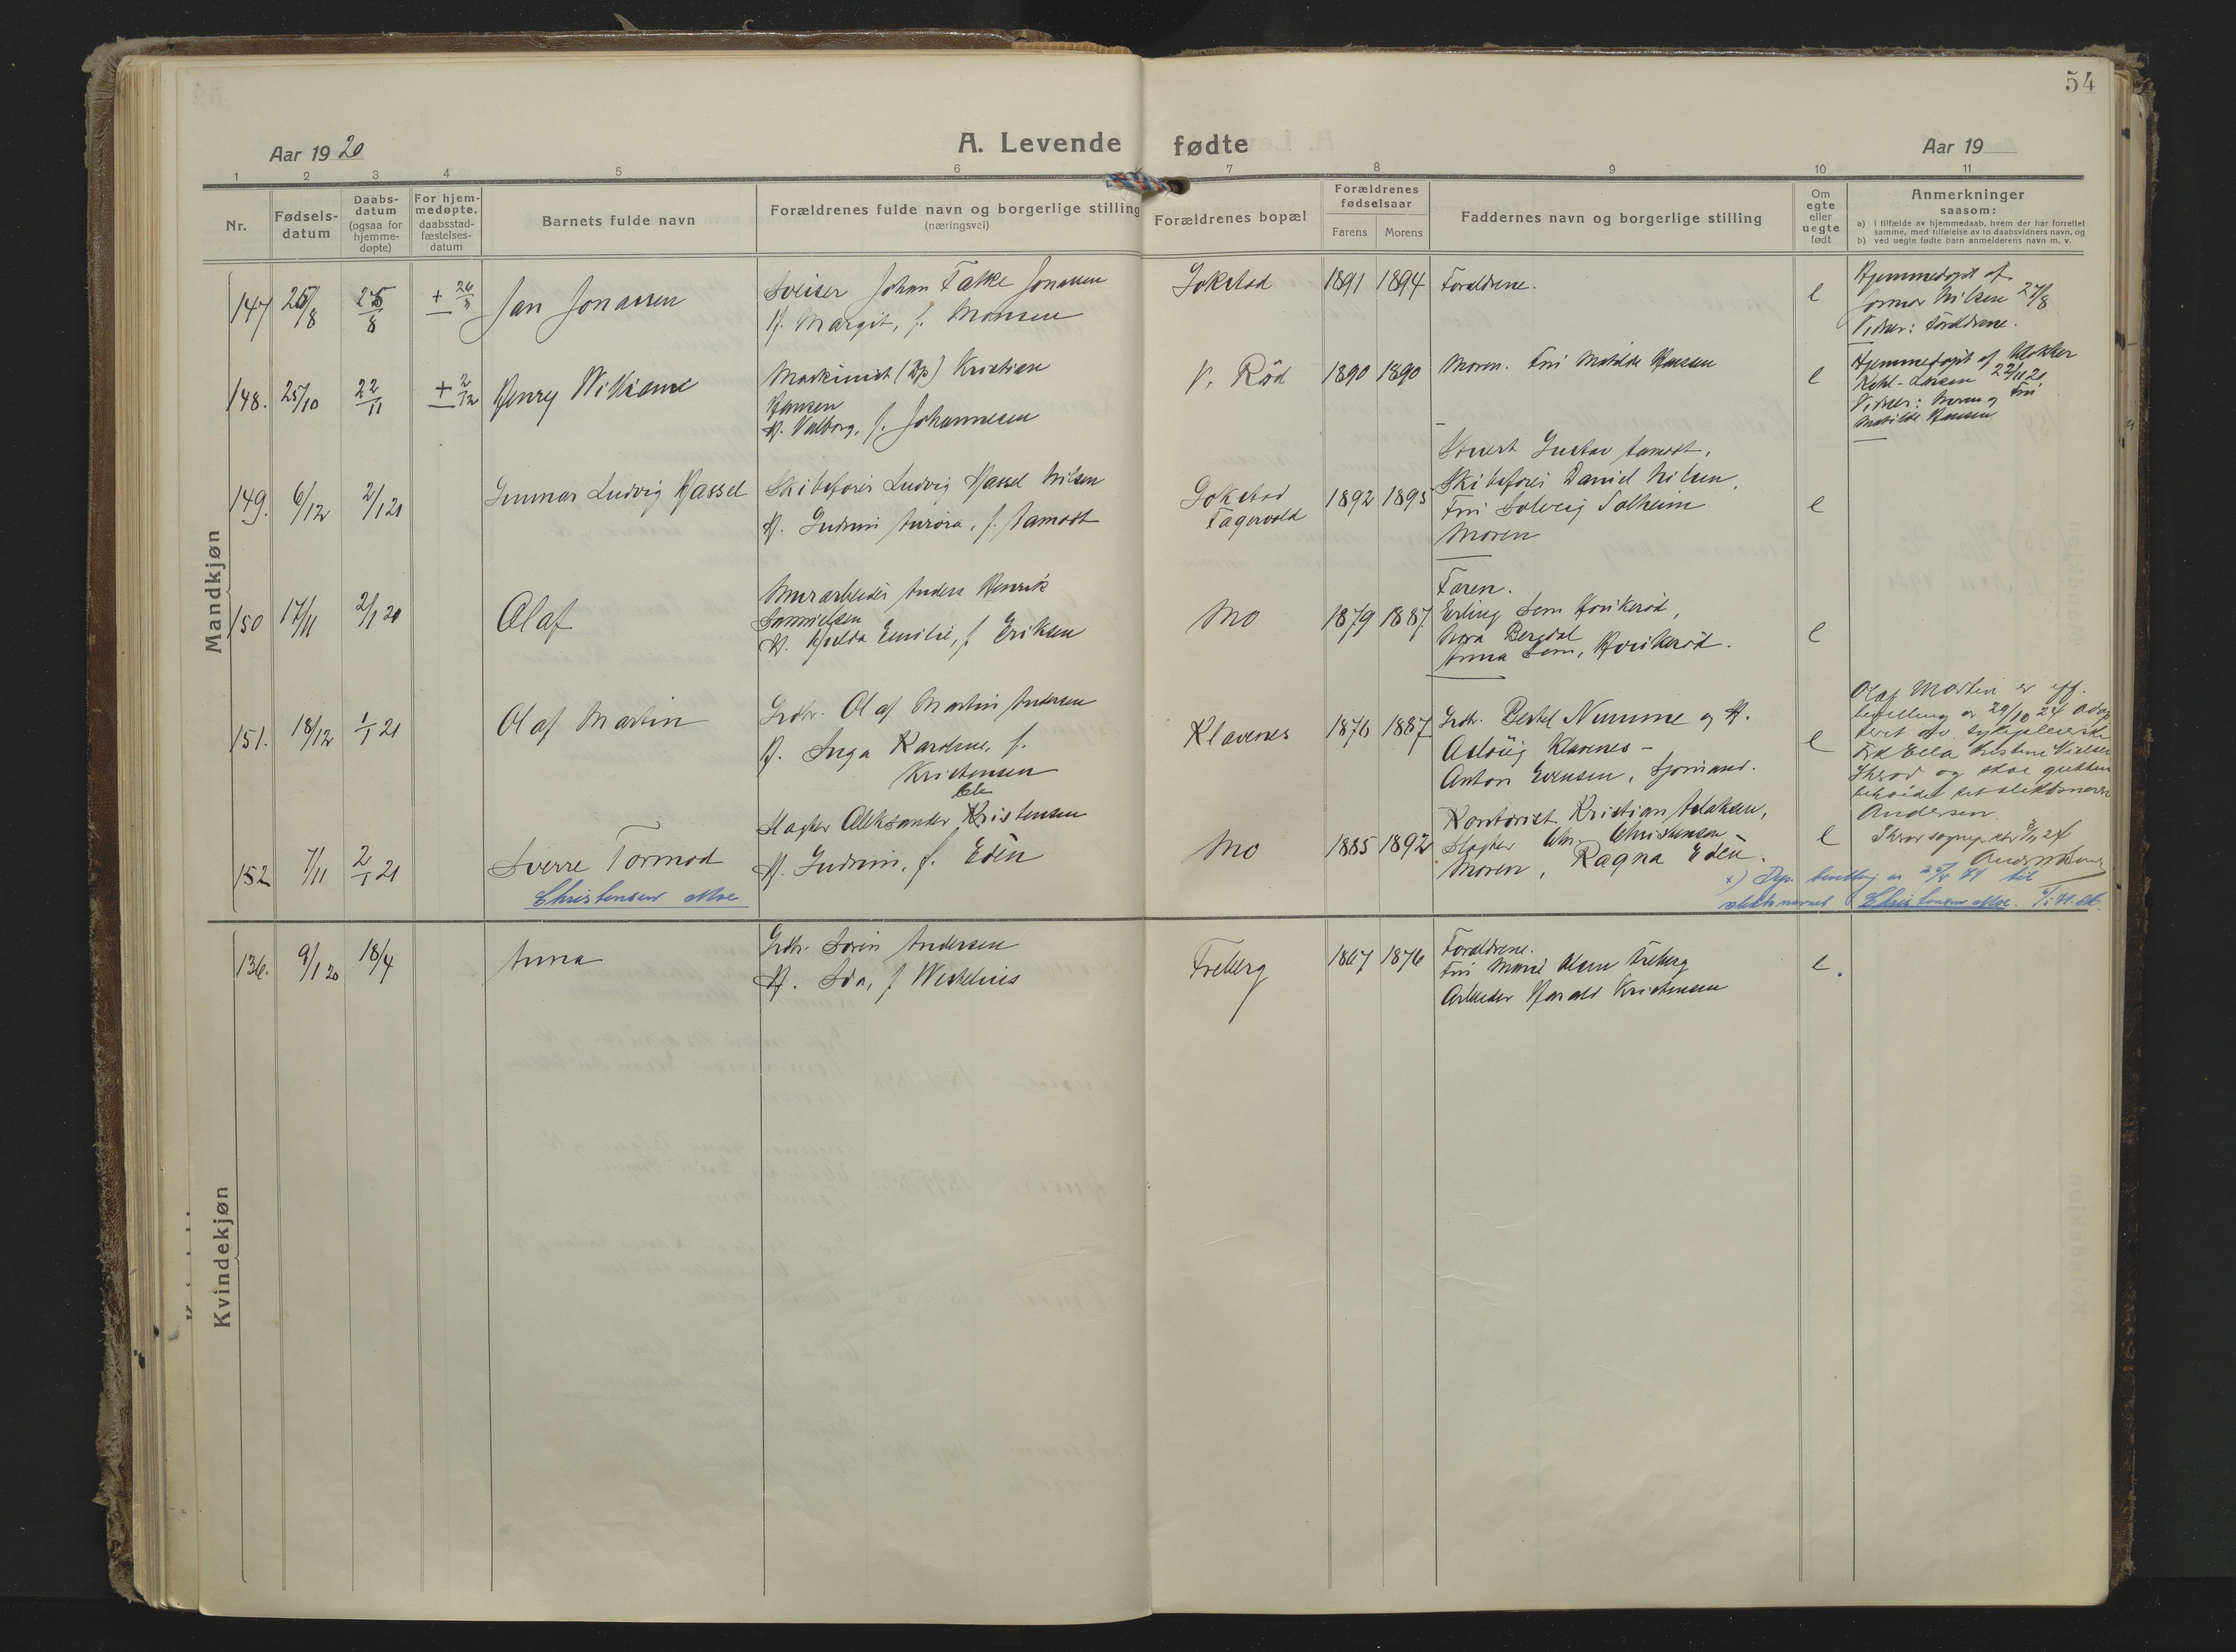 54
Aar 1920
A. Levende fødte
Aar 19
1 2 3 4 5 6 7 8 9 10 11
Nr.
Fødsels-
datum
Daabs-
datum
(ogsaa for
hjemme-
døpte)
For hjem-
medøpte,
daabsstad-
fæstelses-
datum
Barnets fulde navn
Forældrenes fulde navn og borgerlige stilling
(næringsvei)
Forældrenes bopæl
Forældrenes
fødselsaar
Farens Morens
Faddernes navn og borgerlige stilling
Om
egte
eller
uegte
født
Anmerkninger
saasom:
a) i tilfælde av hjemmedaab, hvem der har forrettet
samme, med tilføielse av to daabsvidners navn, og
b) ved uegte fødte barn anmelderens navn m. v.
Mandkjøn
147 25/8 25/8 + 26/8
Jan Jonassen
Sveiser Johan Falke Jonassen
H. Margit, f. Monsen
Gokstad
1891 1894
Forældrene.
e
Hjemmedøpt af
Jormor Nilsen 25/8
Vidner: Forældrene.
148. 25/10 22/11 + 2/12
Henry Williame
Maskinist (Dp) Kristian
Hansen
H. Valborg, f. Johannesen
V. Röd
1890 1890
Moren. Fru Matilde Hansen
e
Hjemmedøpt af klokker
Kohl-Larsen 22/11 20
Vidner: Moren og Fru
Matilde Hansen
149. 6/12 2/1 21
Gunnar Ludvig Hassel
Skibsfører Ludvig Hassel Nilsen
H. Gudrun Aurora, f. Aamodt
Gokstad
Fagervold
1892 1895
Stuert Gustav Aamodt,
Skibsfører Daniel Nilsen,
Fru Solveig Solheim
Moren
e
150 17/11 2/1 20
Olaf
Murarbeider Anders Henrik
Samuelsen
H. Hulda Emilie, f. Eriksen
Mo
1879 1887
Faren.
Erling Sem Hovikerød,
Nora Bergdal
Anna Sem, Hovikerød.
e
151. 18/12 1/1 21
Olaf Martin
Grdbr. Olaf Martin Andersen
H. Inga Karoline, f.
Kristensen
Klavenes
1876 1887
Grdbr. Berthel Numme og H.
Aslaug Klavenes -
Anton Evensen, Sjømand.
e
Olaf Martin er iflg.
bevilling av 29/10 24 adop
teret av sykepleierske
Frk Ella Kristine Nielsen
Skrav og skal gutten
beholde sit slektsnavn
Andersen.
152 7/11 2/1 21
Sverre Tormod
Christensen Moe
Slagter Aleksander Kristensen
Ch
H. Gudrun, f. Edèn
Mo
1885 1892
Kontorist Kristian Aslaksen,
Slagter Chr. Christensen
Moren, Ragna Edèn.
e
x) Dep. bevilling av 25/4 41 til
slektsnavnet Christensen Moe.
Kvindekjøn
136. 9/1 20 18/4
Anna
Grdbr. Søren Andersen
H. Ida, f. Westelius
Freberg
1867 1876
Forældrene.
Fru Marie Olsen Freberg
Arbeider Harald Kristensen
e.